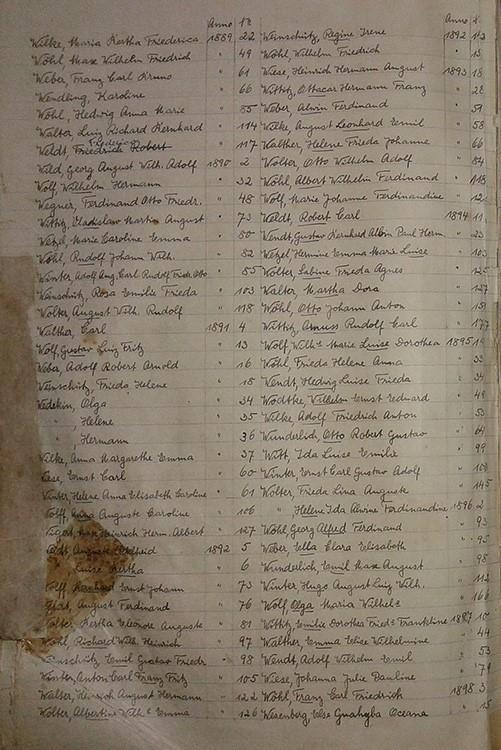 Anno
Wilke, Maria Bertha Friederica 1889 22
Wöhl, Max Wilhelm Friedrich " 49
Weber, Franz Carl Bruno " 61
Wendling, Karoline " 66
Wöhl, Hedwig Anna Marie " 85
Walter Luis Richard Bernhard " 114
Weldt, Friedrich Robert " 117
Wild, Georg August Wilh. Adolf 1890 2
Wolf Wilhelm Hermann " 32
Wegner, Ferdinand Otto Friedr. " 48
Wittig, Wladislav Martin August " 73
Wetzel, Marie Caroline Emma " 80
Wöhl, Rudolf Johann Wilh. " 82
Winter, Adolf Aug. Carl Rudolf Friedr. Otto " 85
Weinschütz, Rosa Emilie Frieda " 103
Wolter August Wilh. Rudolf " 118
Walther, Carl 1891 4
Wolf, Gustav Luis Fritz " 13
Weber Adolf Robert Arnold " 16
Weinschütz, Frieda Helene " 18
Wedekin, Olga " 34
" Helene " 35
" Hermann " 36
Wilke, Anna Margarethe Emma " 37
Ernst Carl " 60
Winter, Helene Anna Elisabeth Caroline " 61
Wolff, Anna Auguste Caroline " 106
Max Heinrich Herm. Albert " 127
Auguste 1892 5
Luise Bertha " 6
Wolff Bernhard Ernst Johann " 73
August Ferdinand " 76
Wolter Bertha Eleonore Auguste " 81
Wöhl, Richard Wilh. Heinrich " 97
Weinschütz, Emil Gustav Friedr. " 98
Winter, Anton Carl Franz Fritz " 105
Walter, Hinrich August Hermann " 122
Wolter, Albertine Wilh. Emma " 126
Anno
Weinschütz, Regine Irene 1892
Wöhl, Wilhelm Friedrich "
Wiese, Heinrich Hermann August 1893 18
Wittig, Ottocar Hermann Franz " 28
Weber, Alwin Ferdinand " 51
Wilke, August Leonhard Emil " 58
Walther, Helene Frieda Johanne " 66
Wolter, Otto Wilhelm Adolf " 84
Wöhl, Albert Wilhelm Ferdinand " 118
Wolf Marie Johanne Ferdinandine "
Weldt, Robert Carl 1894 11
Wendt, Gustav Bernhard Albin Paul Herm. " 23
Wetzel, Hermine Emma Marie Luise " 103
Wolter Sabine Frieda Agnes " 125
Walter Martha Dora " 127
Wöhl, Otto Johann Anton " 151
Wittig, Rudolf Carl " 177
Wolf, Wilh. Marie Luise Dorothea 1895
Wöhl, Frieda Helene Anna "
Wendt, Hedwig Luise Frieda "
Wodtke, Wilhelm Ernst Eduard " 49
Wilke, Adolf Friedrich Anton " 53
Wunderlich, Otto Robert Gustav " 64
Witt, Ida Luise Emilie " 99
Winter, Ernst Carl Gustav Adolf "
Wolter, Frieda Lina Auguste " 145
" Helene Ida Ferdinandine 1896 2
Wöhl, Georg Alfred Ferdinand " 93
Weber, Ella Clara Elisabeth " 95
Wunderlich, Emil Max August " 98
Winter Hugo August Luis Wilh. " 112
Wolf, Olga Maria Wilhel " 166
Wittig, Emilie Dorothea 1897
Walther, Emma Elise Wilhelmine " 44
Wendt, Adolf Wilhelm Emil " 53
Wiese, Johanna Julie Pauline " 71
Wöhl, Franz Carl Friedrich 1898 3
Wesenberg, Else Guahyba Oceana " 15